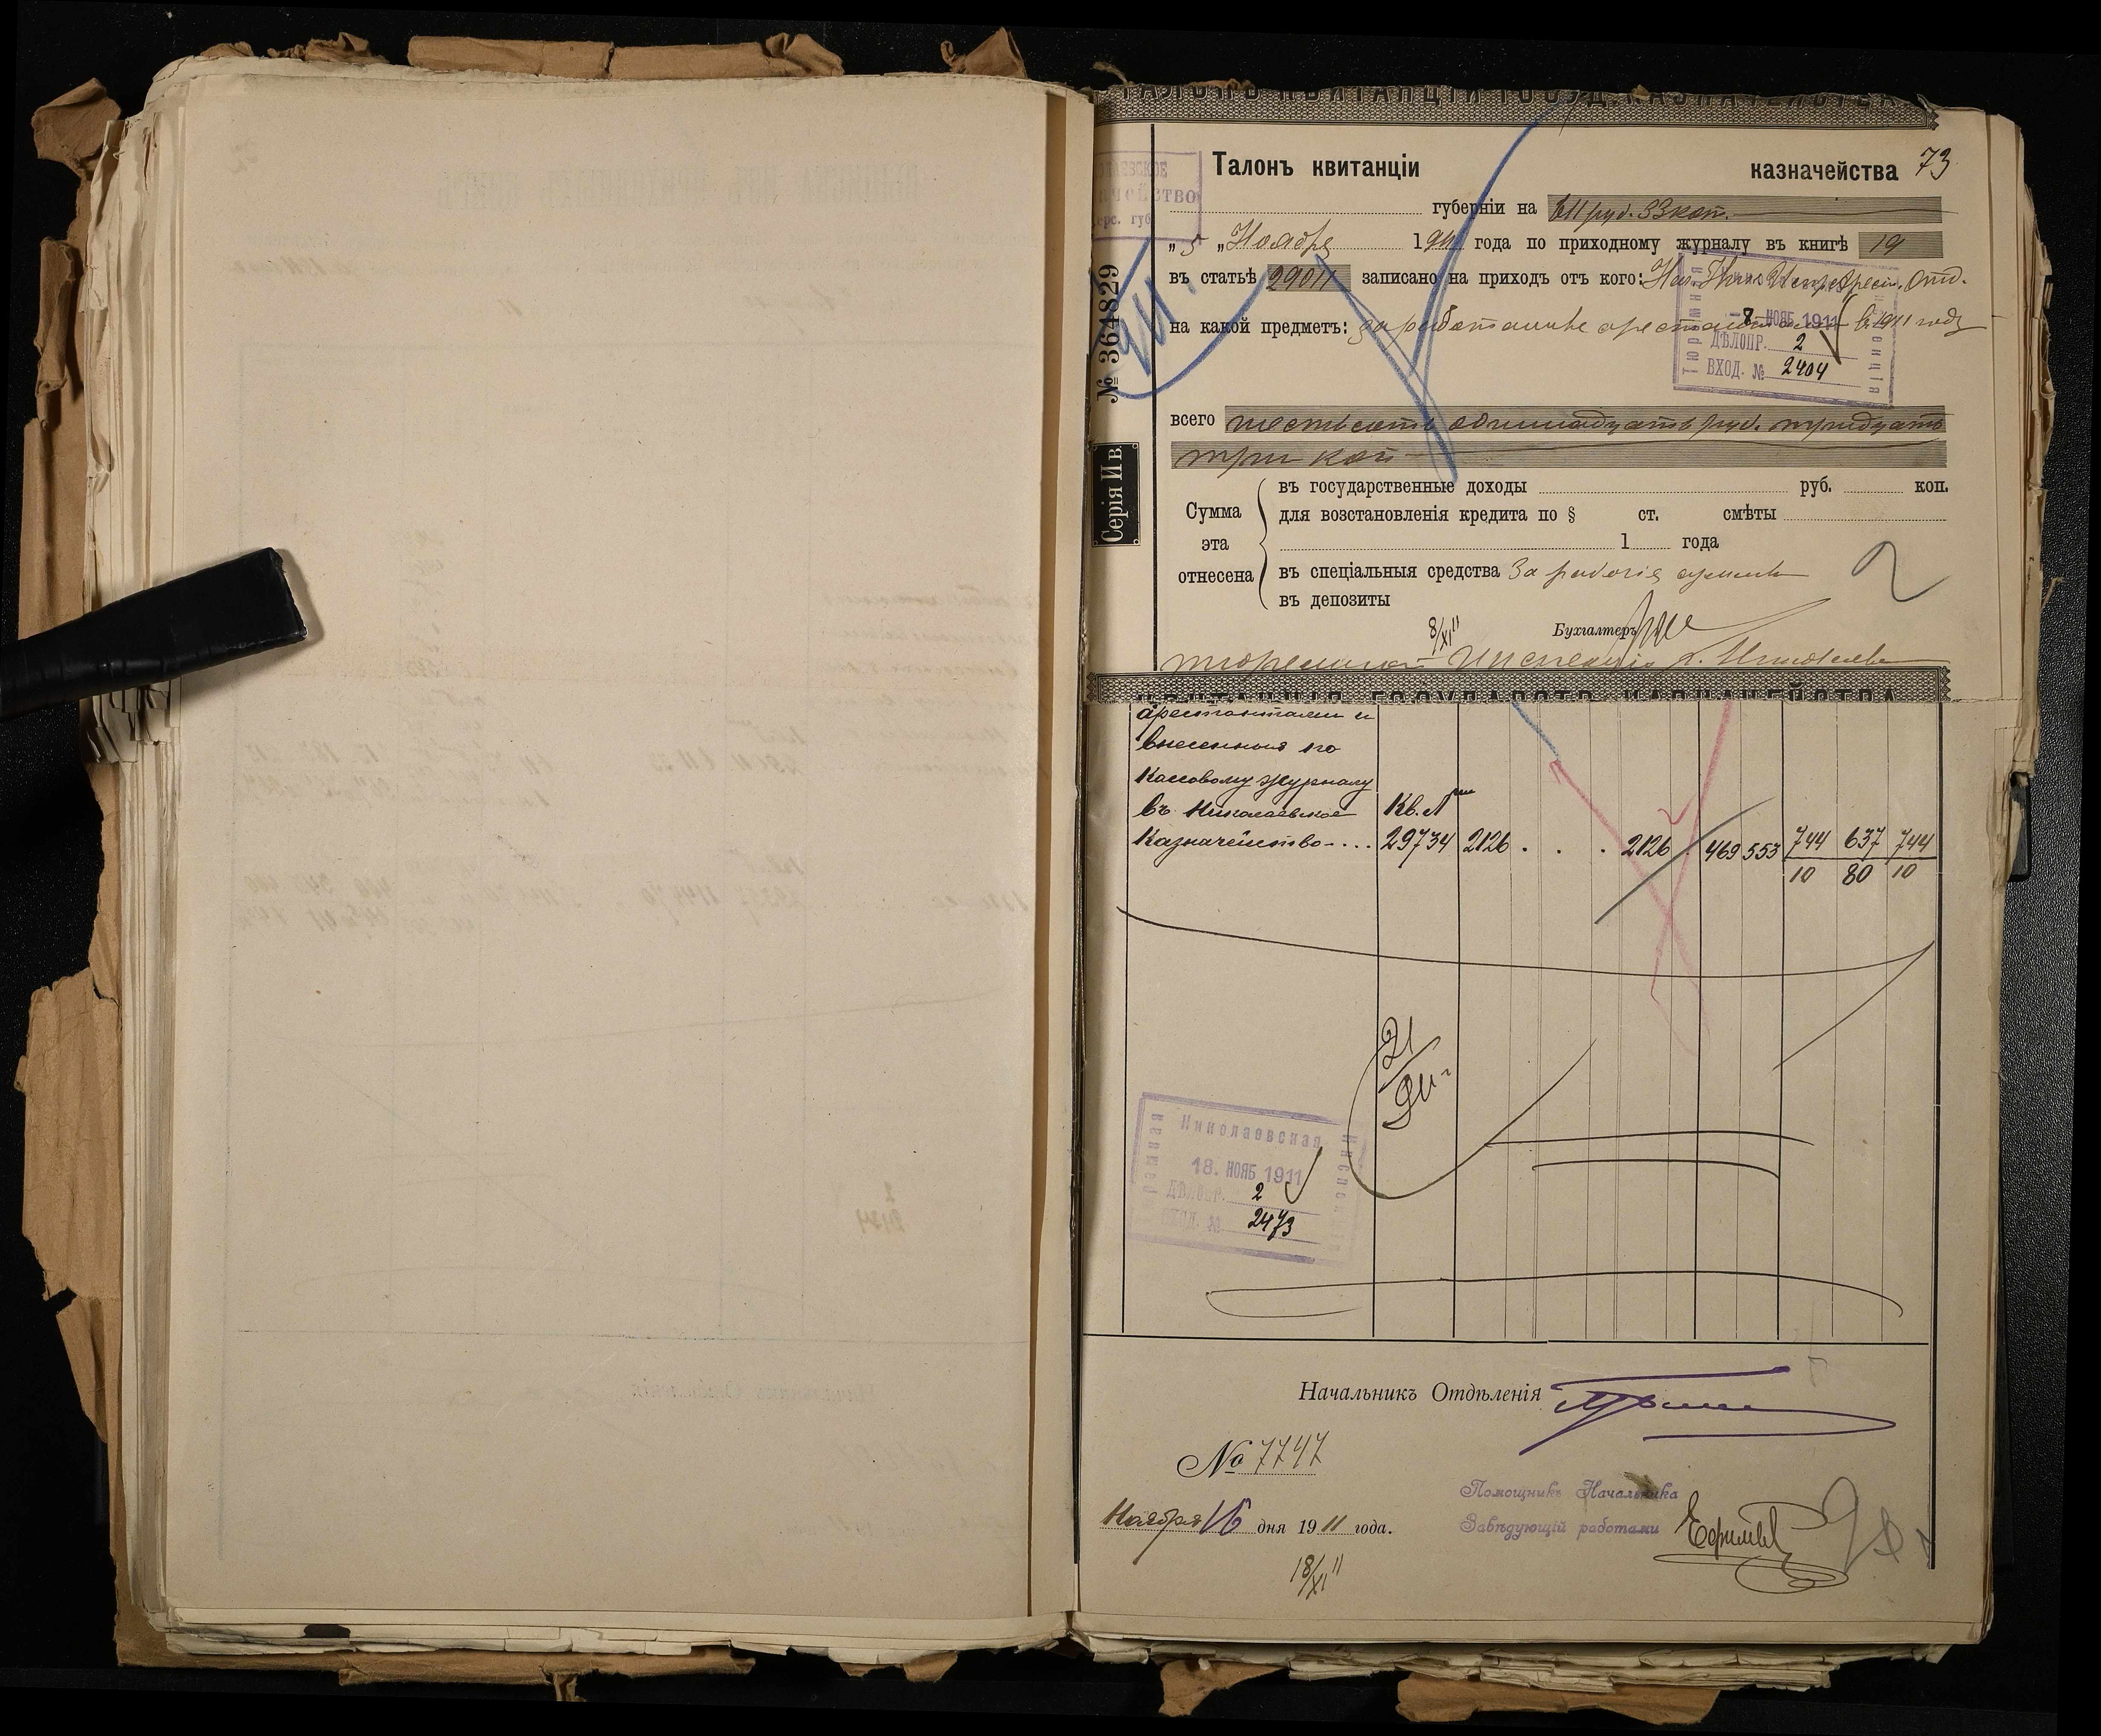 ТАЛОНЪ КВИТАНЦІИ ГОСУД. КАЗНАЧЕЙСТВА
Талонъ квитанціи казначейства 73
губерніи на 611 руб. 33 коп.
„ 5 „ Ноября 1911 года по приходному журналу въ книгѣ 19
въ статьѣ 29011 записано на приходъ отъ кого: Нач. Ник. Испр. Арест. Отд.
на какой предметъ: заработанные арестантами въ 1911 году
-8. НОЯБ 1911
ДѢЛОПР. 2
ВХОД. № 2404
№ 364829
Серія И в
всего шестьсотъ одиннадцать руб. тридцать
три коп
Сумма эта отнесена
въ государственные доходы руб. коп.
для возстановленія кредита по § ст. смѣты
1 года
въ спеціальныя средства За рабочія суммы
въ депозиты
8/XI 11
Бухгалтеръ
тюремный Инспекціи г. Николаева
КВИТАНЦІЯ ГОСУДАРСТВ. КАЗНАЧЕЙСТВА
арестантами и
внесенныя по
Кассовому журналу
въ Николаевское Кв. №
Казначейство 29734 2126 . . . 2126 469 553 744 637 744
10 80 10
21
Николаевская
18. НОЯБ 1911
ДѢЛОПР. 2
ВХОД. № 2473
Начальникъ Отдѣленія
№ 7747
Помощникъ Начальника
Завѣдующій работами Ефимов
Ноября 16 дня 1911 года.
18/XI 11